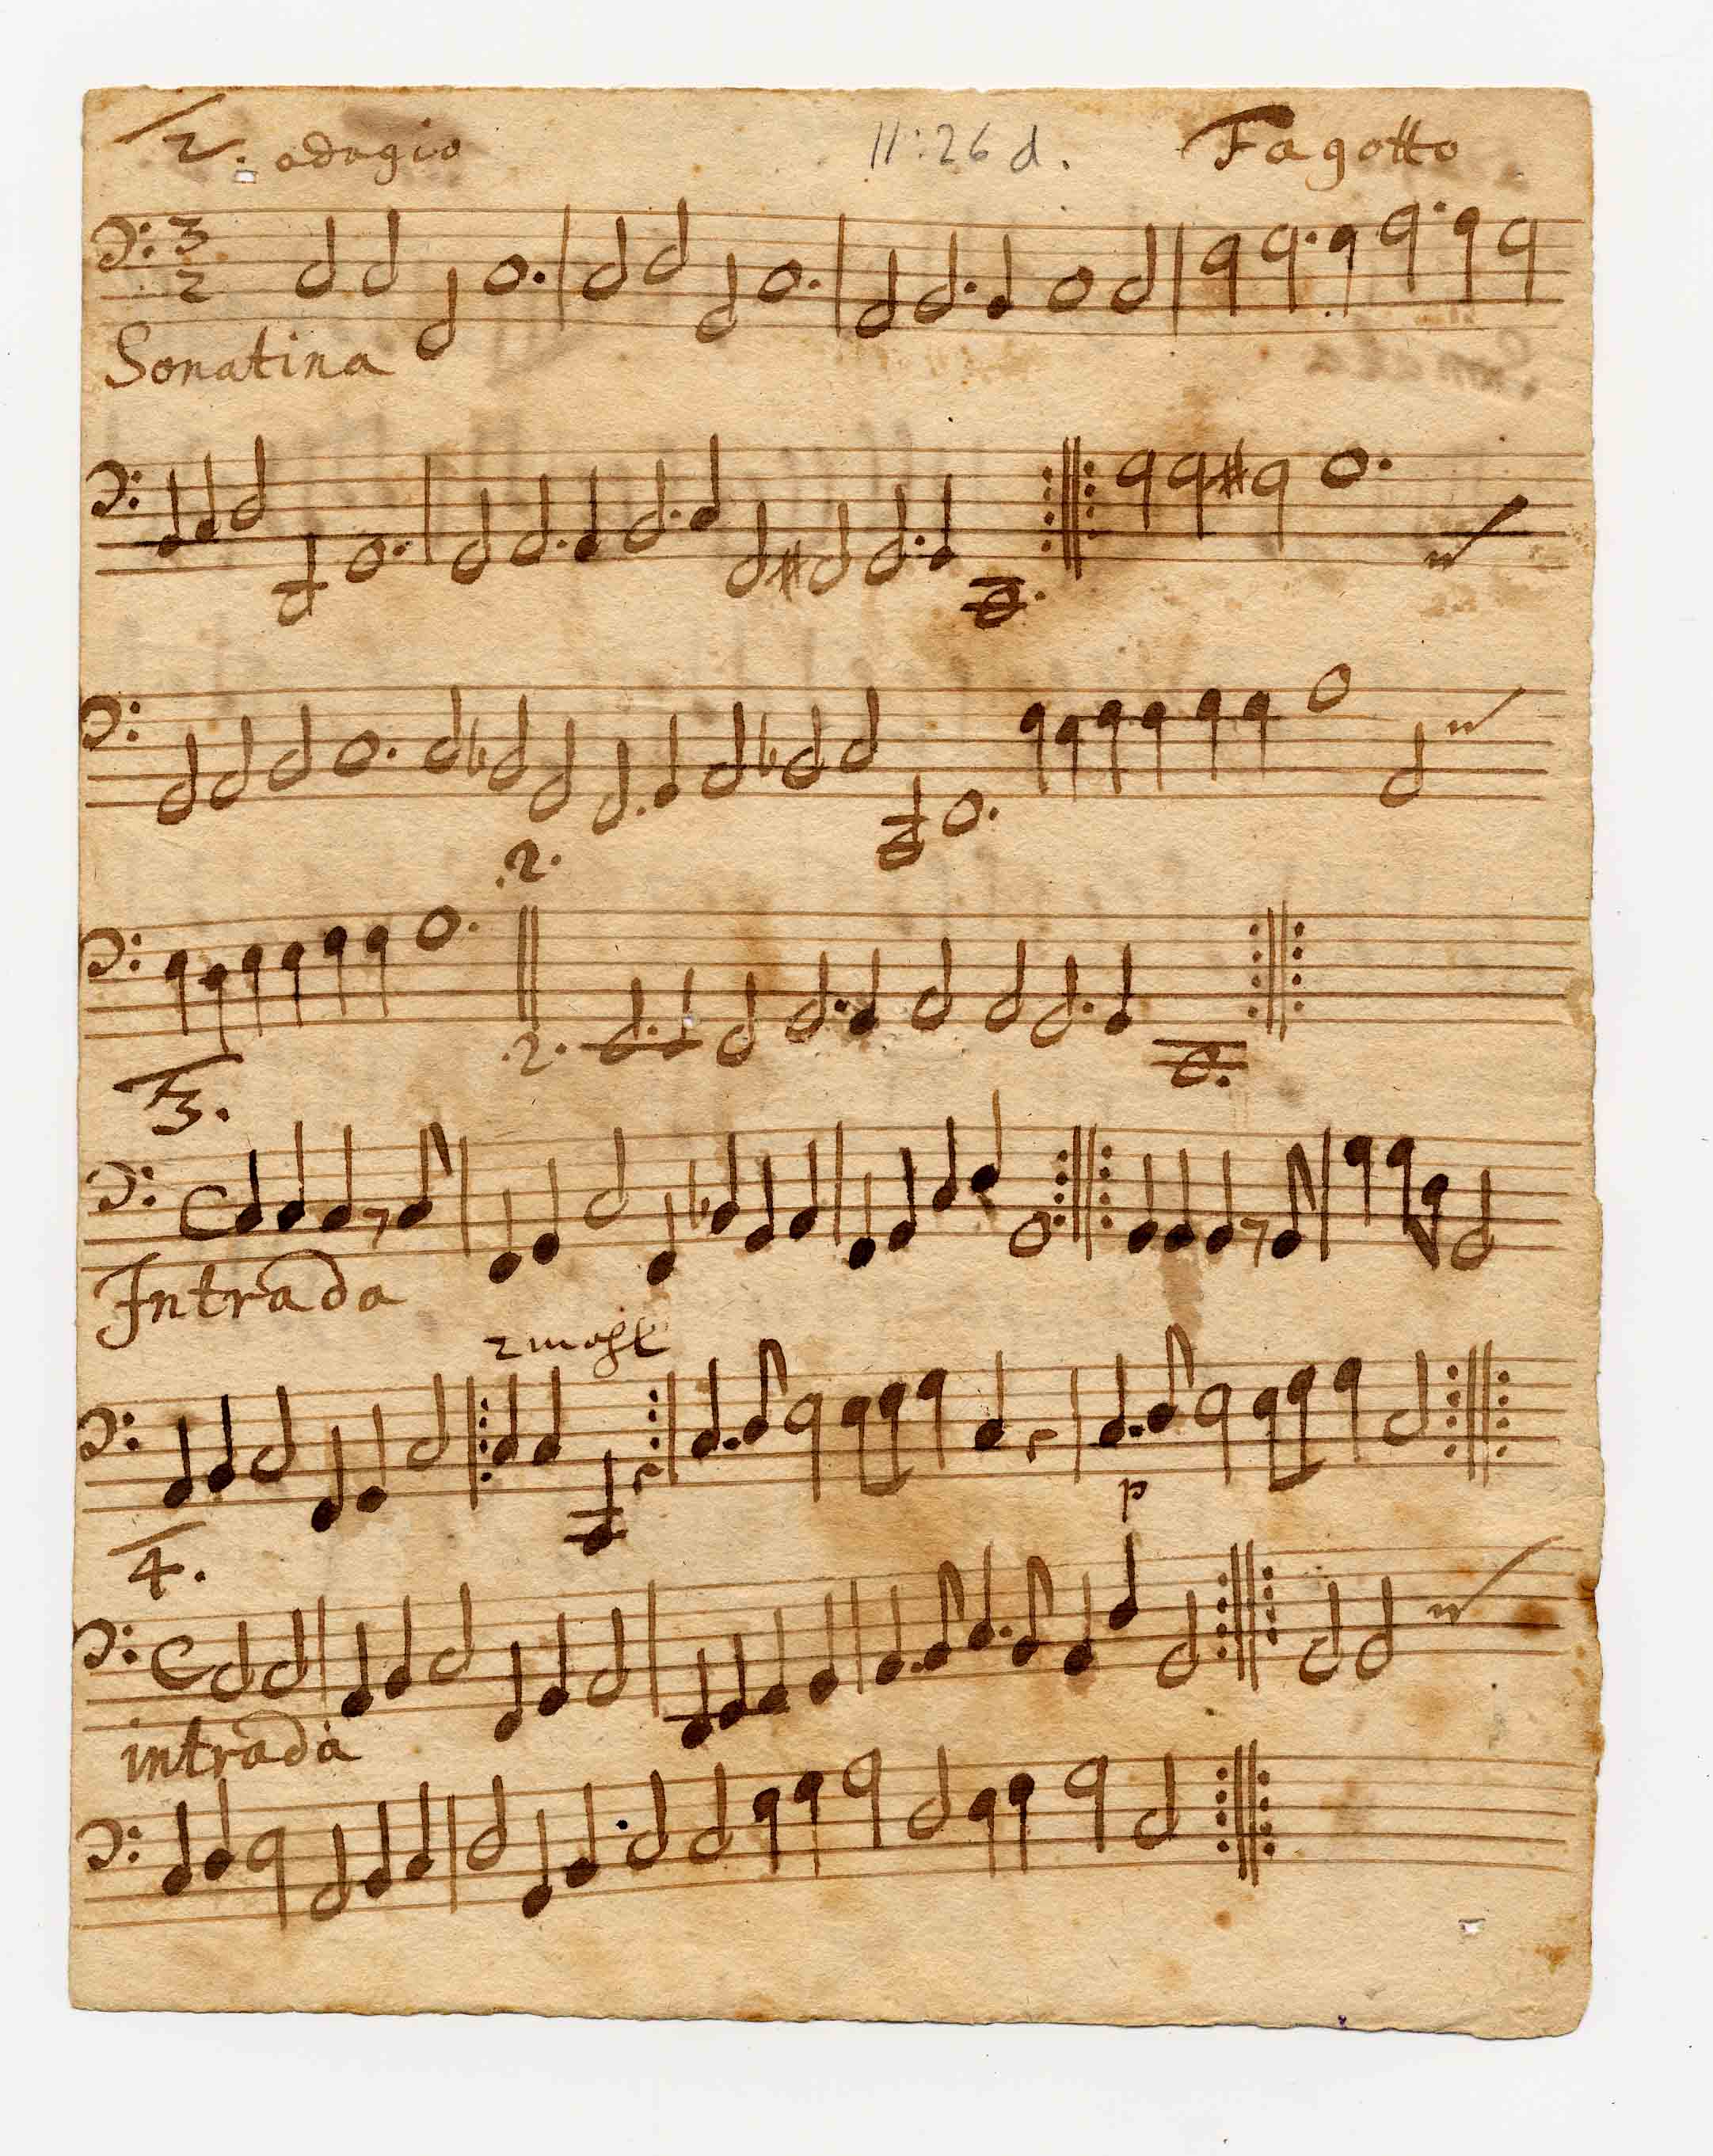 2. adagio 11:26 d. Fagotto
3
2
Sonatina
.2.
.2.
3.
Intrada
2mahl
p
4.
intrada